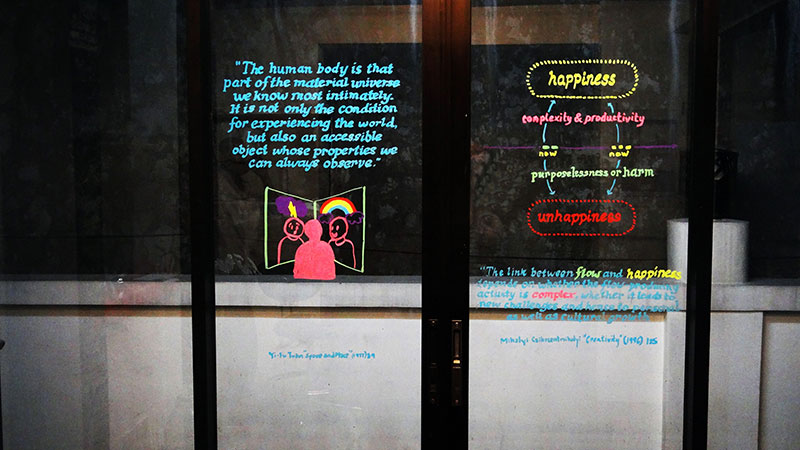 "The human body is that
part of the material universe
we know most intimately.
It is not only the condition
for experiencing the world,
but also an accessible
object whose properties we
can always observe."
Yi-Fu Tuan "Space and Place" (1977) 89
happiness
complexity & productivity
now
now
purposelessness or harm
unhappiness
"The link between flow and happiness
depends on whether the flow-producing
activity is complex, whether it leads to
new challenges and hence to personal
as well as cultural growth
Mihalyi Csikszentmihalyi "Creativity" (1996) 125